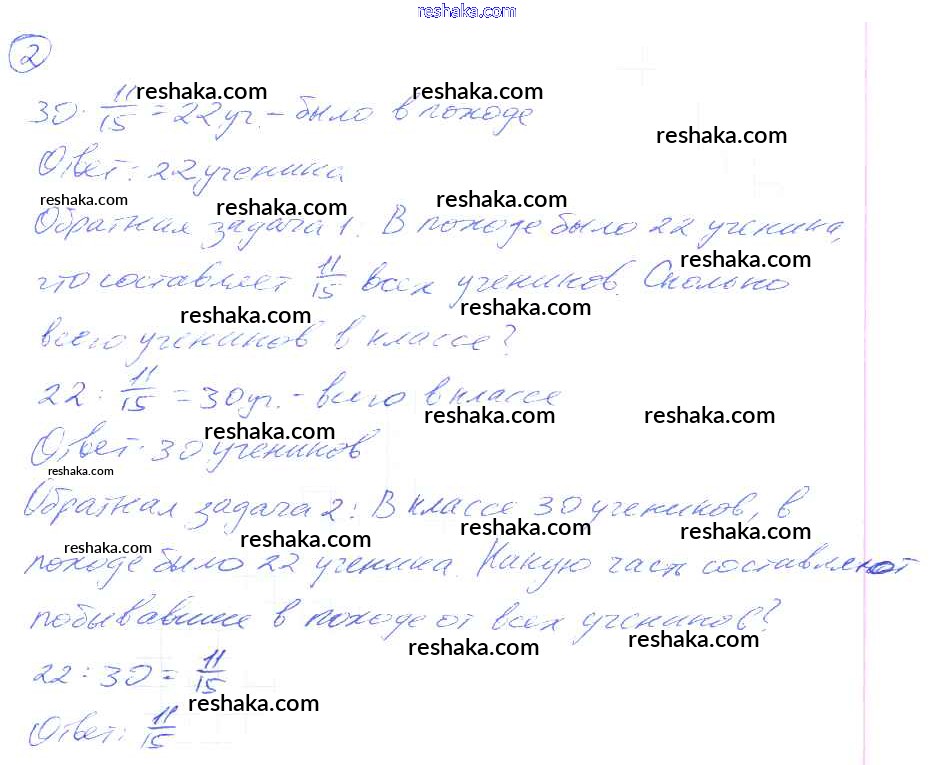 reshaka.com
2
reshaka.com reshaka.com
30 · 11/15 = 22 уч. - было в походе
reshaka.com
Ответ: 22 ученика
reshaka.com reshaka.com reshaka.com
Обратная задача 1. В походе было 22 ученика,
reshaka.com
что составляет 11/15 всех учеников. Сколько
reshaka.com reshaka.com
всего учеников в классе?
22 : 11/15 = 30 уч. - всего в классе
reshaka.com reshaka.com reshaka.com
Ответ: 30 учеников
reshaka.com
Обратная задача 2: В классе 30 учеников, в
reshaka.com reshaka.com reshaka.com reshaka.com
походе было 22 ученика. Какую часть составляют
побывавшие в походе от всех учеников?
reshaka.com reshaka.com
22 : 30 = 11/15
reshaka.com
Ответ: 11/15